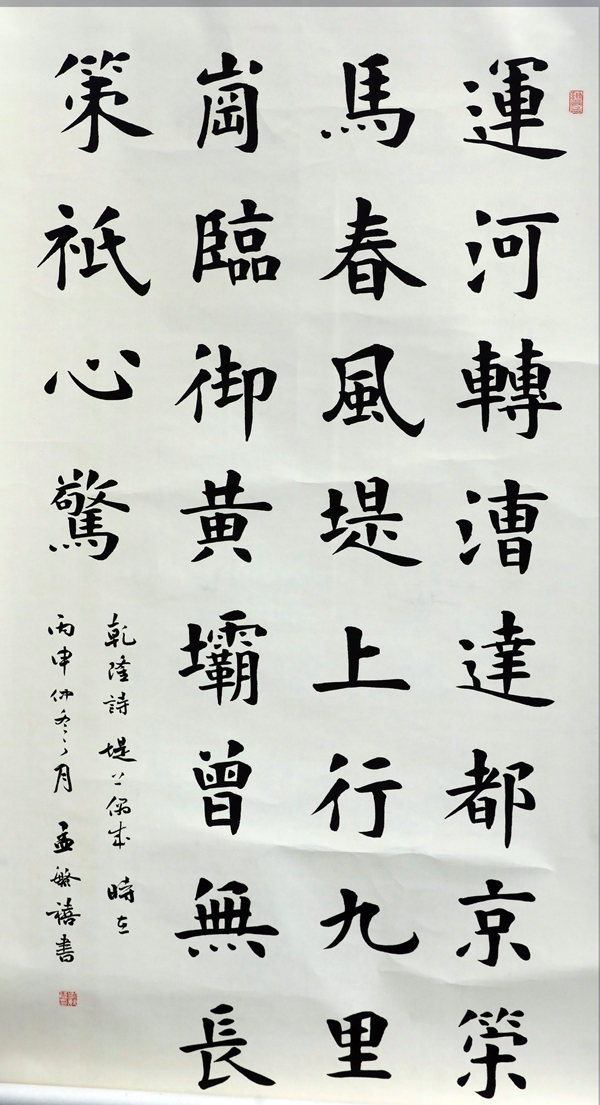 運河轉漕達都京策
馬春風堤上行九里
崗臨御黄壩曾無長
策祇心驚
乾隆詩 堤上偶成 時在
丙申仲冬之月 孟繁禧書